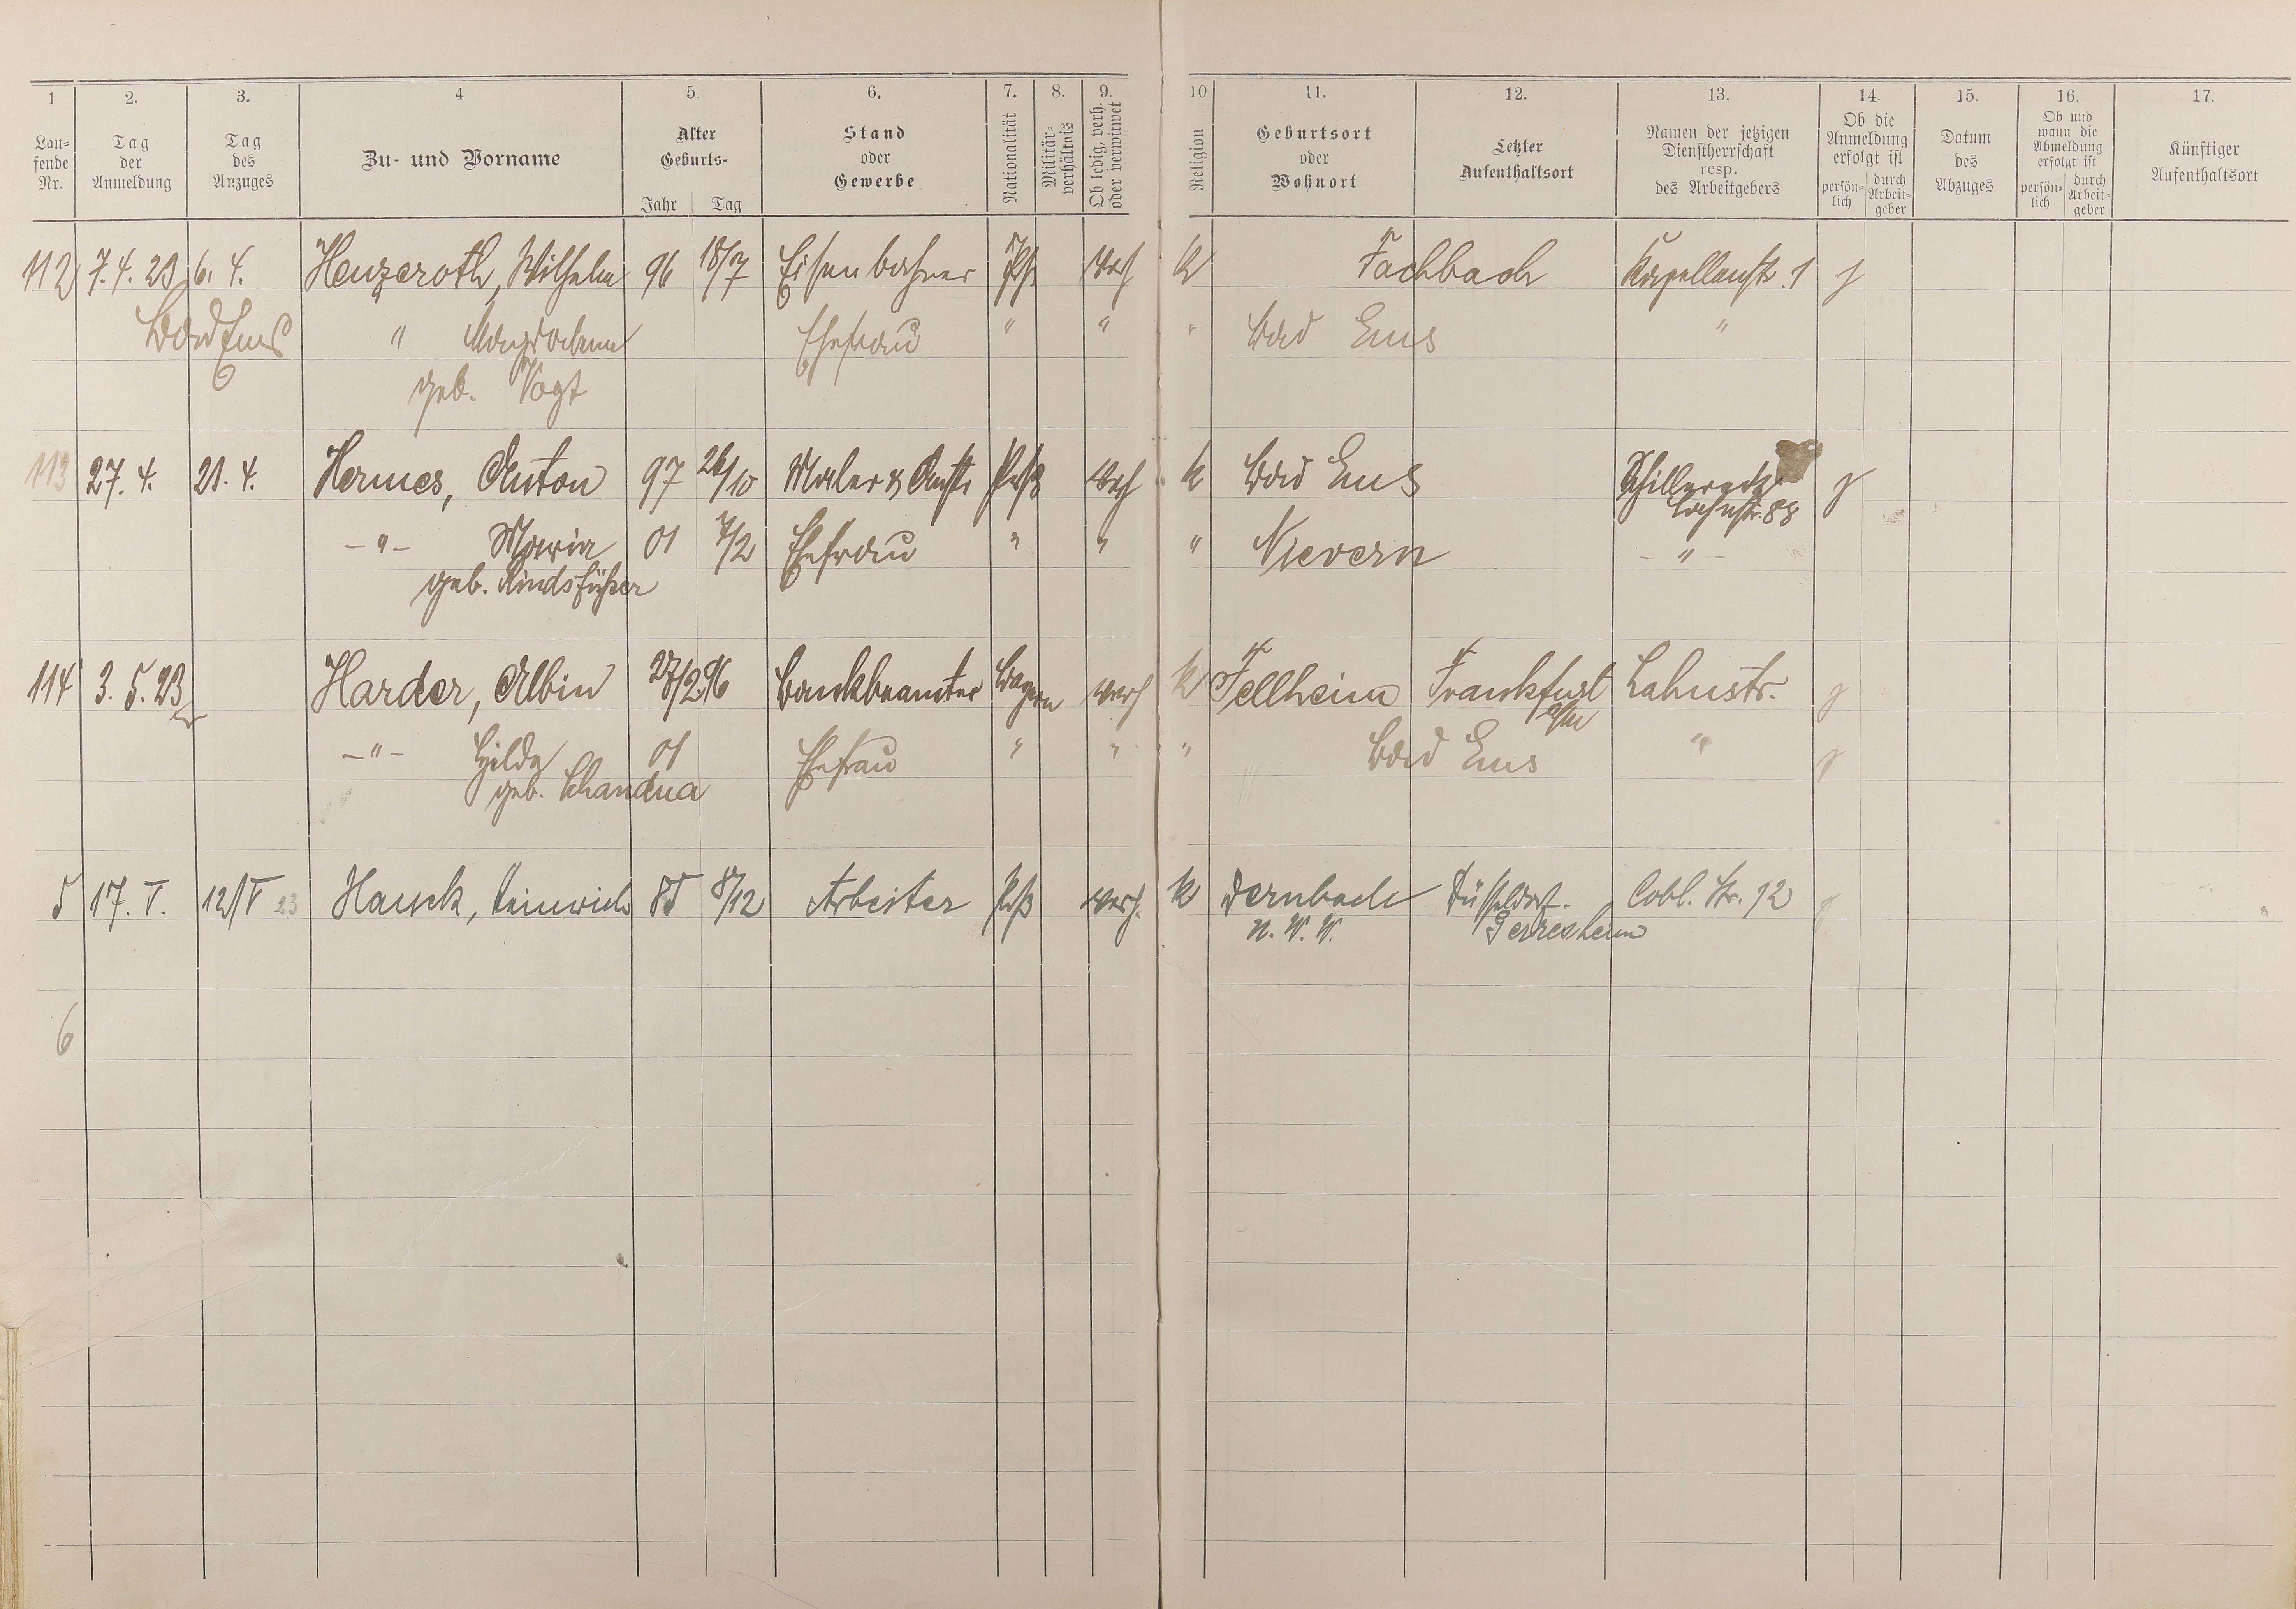 1 2. 3. 4 5. 6. 7. 8. 9. 10 11. 12. 13. 14. 15. 16. 17.
Laufende Nr. Tag der Anmeldung Tag des Anzuges Zu- und Vorname Alter Geburts- Jahr Tag Stand oder Gewerbe Nationalität Militärverhältnis Ob ledig, verh. oder verwitwet Religion Geburtsort oder Wohnort Letzter Aufenthaltsort Namen der jetzigen Dienstherrschaft resp. des Arbeitgebers Ob die Anmeldung erfolgt ist persönlich durch Arbeitgeber Datum des Abzuges Ob und wann die Abmeldung erfolgt ist persönlich durch Arbeitgeber Künftiger Aufenthaltsort
112 7.4.23 6. 4. Henzeroth, Wilhelm 96 18/7 Eisenbahner Pß verh k Fachbach Kapellenstr. 1 j
Bad Ems " Ehefrau " " " Bad Ems "
geb. Vogt
113 27. 4. 21. 4. Hermes, Anton 97 26/10 Maler & Anstr. Prß verh k Bad Ems j
Lahnstr. 88
-"- Maria 01 7/2 Ehefrau " " " Nievern - " -
geb. Kindsfüßer
114 3. 5. 23 Harder, Albin 27/2 96 Bankbeamter Bayern verh k Fellheim Frankfurt a/m Lahnstr. j
-"- Hilda 01 Ehefrau " " " Bad Ems " j
geb. Schandua
5 17. V. 12/V 23 Hauck, Heinrich 85 8/12 Arbeiter Prß verh. k Dernbach Düsseldorf- Cobl. Str. 12 j
n. W. W. Gerresheim
6